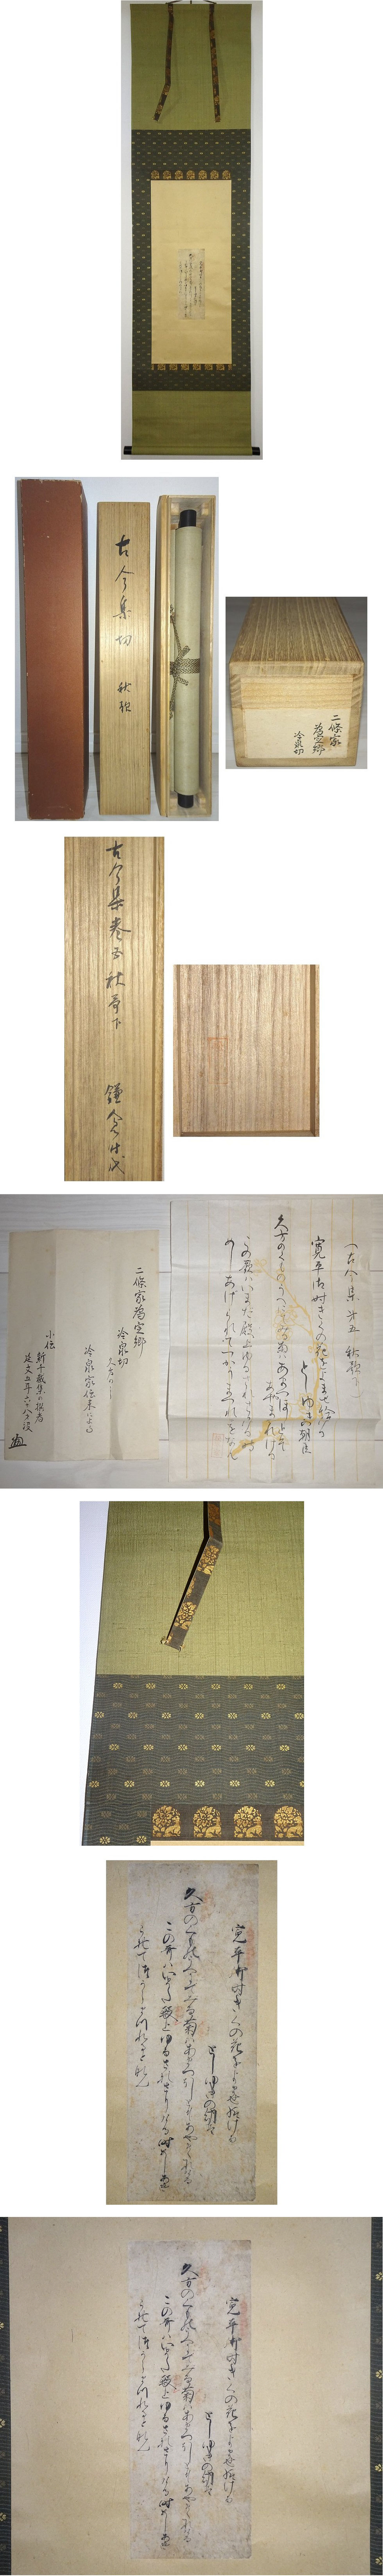 古今集切 秋歌
二條家
為定卿
冷泉切
古今集巻五秋哥下 鎌倉時代
(古今集 第五 秋歌下)
寛平御時きくの花をよませ給ける
としゆきの朝臣
久方のくものうへにてみる菊はあまつほしとそ
あやまたれける
この歌はいまた殿上ゆるされさりける時に
めしあけられてつかうまつれるとなん
二條家為定卿
冷泉切 久方の
冷泉家伝来による
小伝
新千載集の撰者
延文五年 没
寛平御時きくの花をよませ給ける
としゆきの朝臣
久方の雲のうへにてみる菊はあまつほしとそあやまたれける
この哥はいまた殿上ゆるされさりける時めしあけ
られてつかうまつれるとなん
寛平御時きくの花をよませ給ける
としゆきの朝臣
久方の雲のうへにてみる菊はあまつほしとそあやまたれける
この哥はいまた殿上ゆるされさりける時めしあけ
られてつかうまつれるとなん